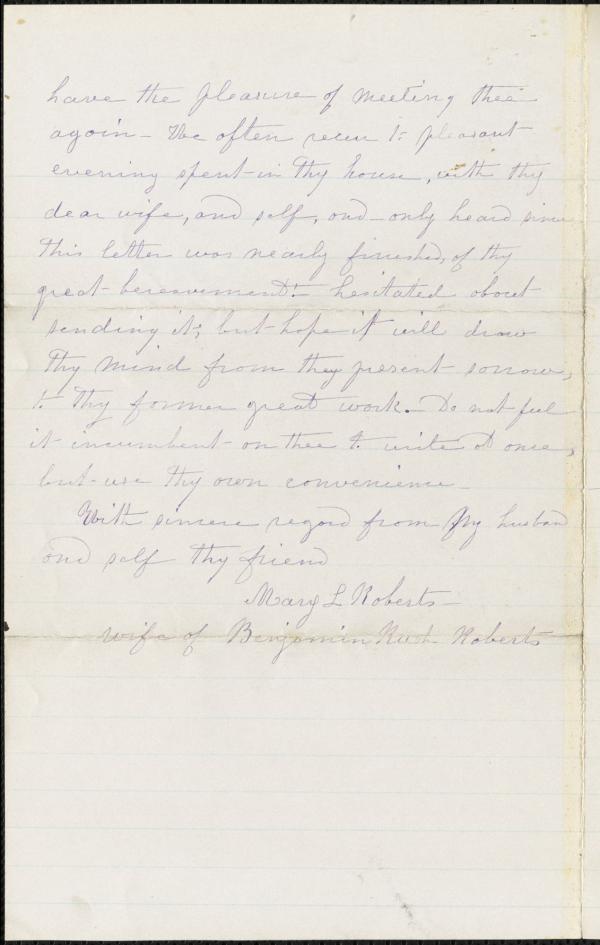 have the pleasure of meeting thee
again - We often recur to pleasant
evening spent in thy house, with thy
dear wife, and self, and only heard since
this letter was nearly finished, of thy
great bereavement! - hesitated about
sending it; but hope it will draw
thy mind from thy present sorrow,
to thy former great work. - Do not feel
it incumbent on thee to write at once,
but use thy own convenience -
With sincere regard from my husband
and self thy friend
Mary L Roberts -
wife of Benjamin Roberts